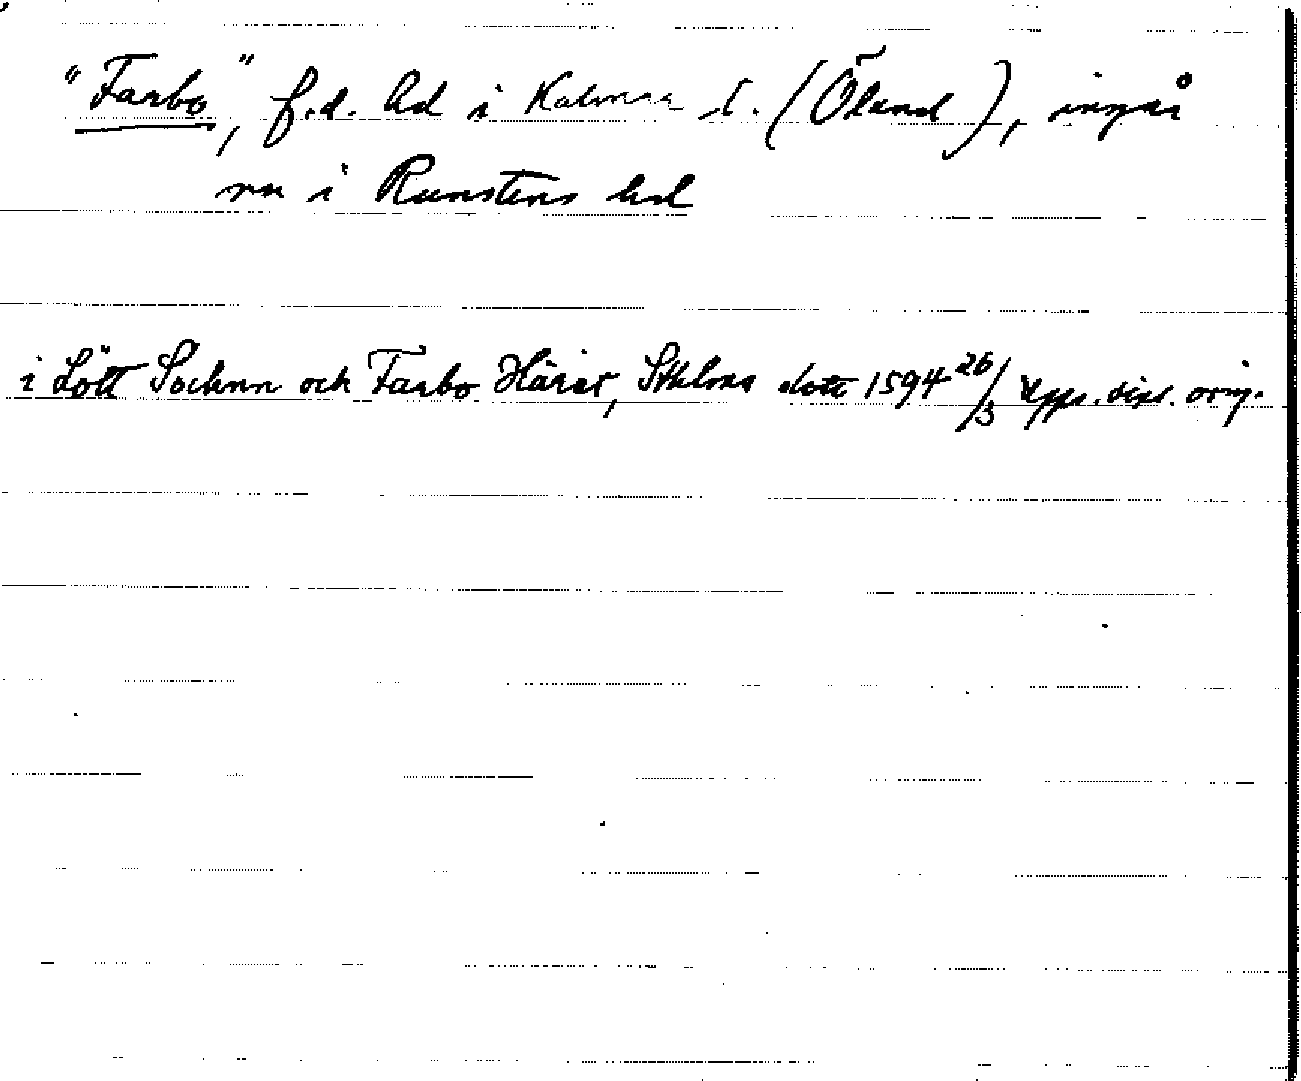 "Farbo", f.d. hd i Kalmar l. (Öland), ingår
nu i Runstens hd
i Lött Socknn och Farbo Häret, Sthlms 1594 26/3 Upps. dipl. orig.